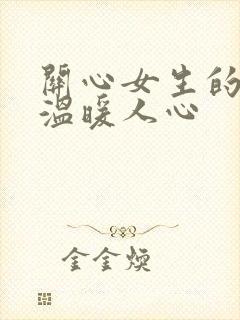 關心女生的
溫暖人心
金金煥